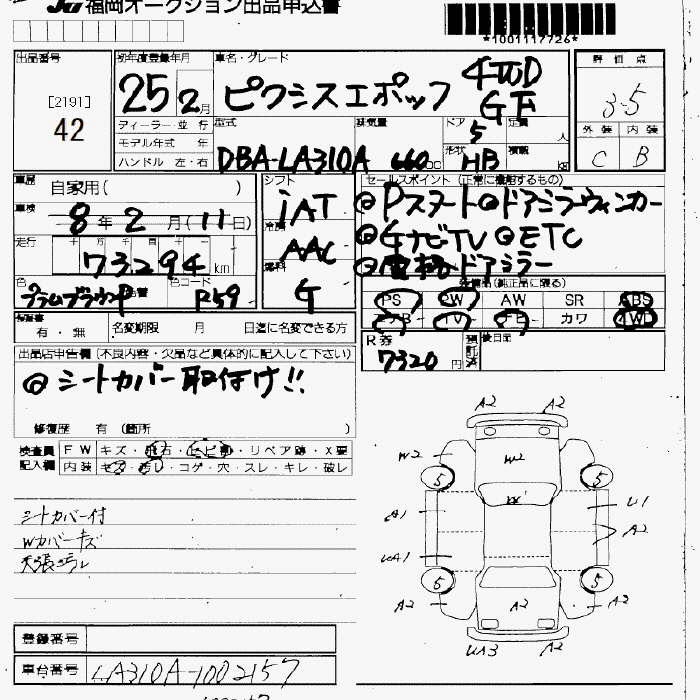 JU福岡オークション出品申込書
*1001117726*
出品番号
[2191]
42
初年度登録年月
25 2月
車名・グレード
ピクシスエポック 4WD
GF
評価点
3-5
外装 内装
C B
ディーラー・並行
モデル年式 年
ハンドル 左・右
型式
DBA-LA310A
排気量
660cc
ドア
5
形状
HB
定員
人
積載
kg
車歴
自家用( )
車検
8年2月(11日)
走行
十万千百十一
73294km
色
プラムブラウンP
色コード
P59
シフト
iAT
冷房
AAC
燃料
G
セールスポイント(正常に機能するもの)
@Pスタート@ドアミラーウィンカー
@GナビTV@ETC
@電格ドアミラー
装備品(純正品に限る)
PS PW AW SR ABS
エアB TV ナビ カワ 4WD
保証書
有・無
名変期限 月 日迄に名変できる方
R券
7320円
預託済
後日品
出品店申告欄(不良内容・欠品など具体的に記入して下さい)
@シートカバー取付け!!
修復歴 有(箇所 )
検査員
記入欄
FW キズ・飛石・ヒビ・リペア跡・X要
内装 キズ・汚レ・コゲ・穴・スレ・キレ・破レ
シートカバー付
Wカバーキズ
天張ヨゴレ
A2 A2
W2 W2
5 5
W
A1 U1
A2
UA1
5 5
A2 A2 A2
UA3 A2
登録番号
車台番号 LA310A-1002157